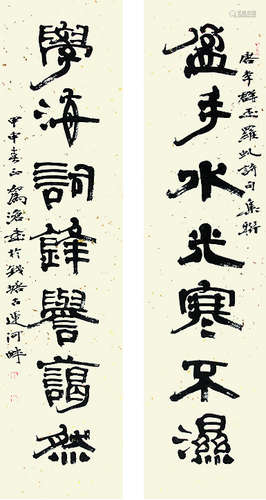 唐李群玉羅虬詩句集聯
盈手水光寒不濕
學海詞鋒譽藹然
甲申春正書於錢塘古運河畔